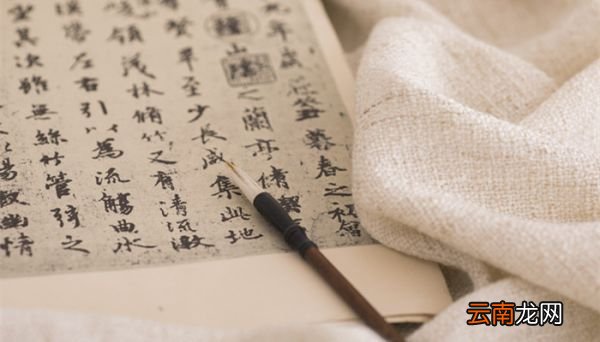 年歲在癸丑暮春之初會
山陰之蘭亭脩禊
畢至少長咸集此地
領茂林脩竹又有清流激
帶左右引以為流觴曲水
坐其次雖無絲竹管弦之
暢敘幽情
云南龙网